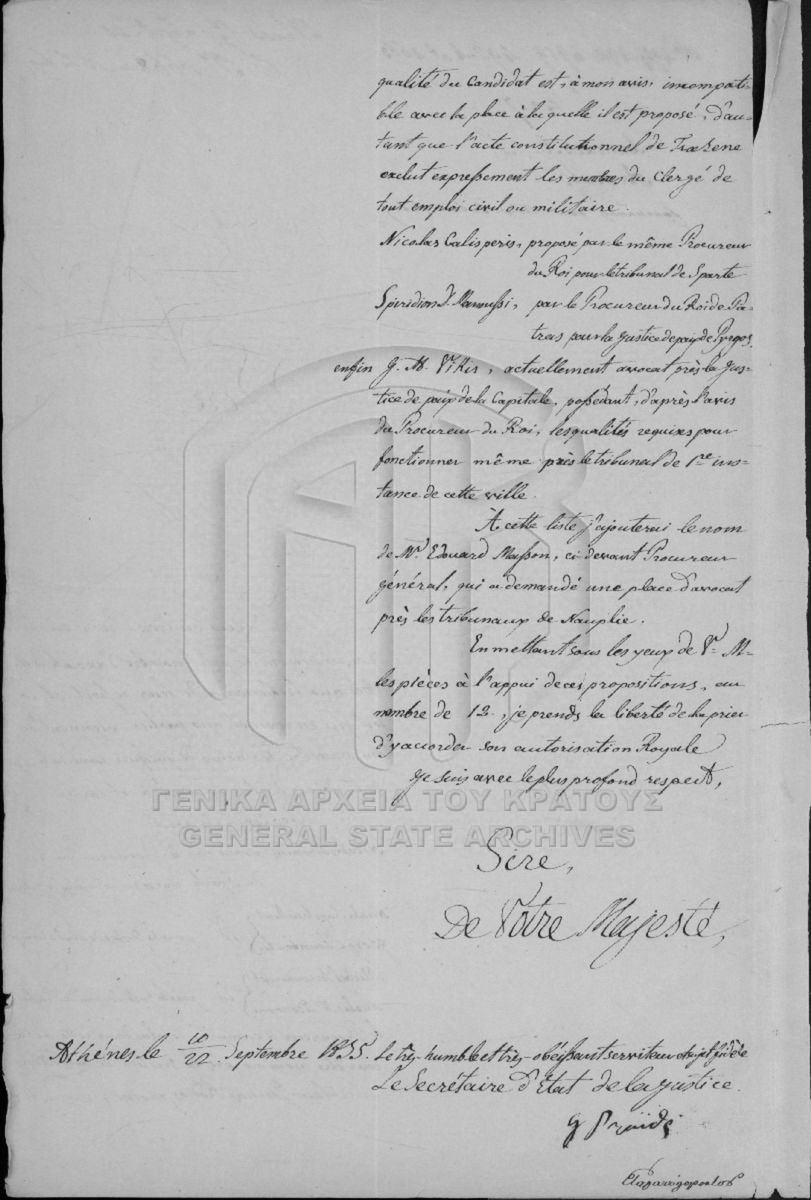 qualité du candidat est, à mon avis, incompati-
ble avec la place à laquelle il est proposé, d'au-
tant que l'acte constitutionnel de Trœzene
exclut expressement les membres du Clergé de
tout emploi civil ou militaire.
Nicolas Calisperis, proposé par le même Procureur
du Roi pour le tribunal de Sparte
Spiridion J. par le Procureur du Roi de Pa-
tras pour la justice de paix de Pyrgos.
enfin G. M. actuellement avocat près la Jus-
tice de paix de la Capitale, possédant, d'après l'avis
du Procureur du Roi, les qualités requises pour
fonctionner même près le tribunal de 1re ins-
tance de cette ville.
À cette liste j'ajouterai le nom
de Mr. Edouard Masson, ci-devant Procureur
général, qui a demandé une place d'avocat
près les tribunaux de Nauplie.
En mettant sous les yeux de V= M=
les pièces à l'appui de ces propositions, au
nombre de 12, je prends la liberté de la prier
d'y accorder son autorisation Royale
Je suis avec le plus profond respect,
ΓΕΝΙΚΑ ΑΡΧΕΙΑ ΤΟΥ ΚΡΑΤΟΥΣ
GENERAL STATE ARCHIVES
Sire,
De Votre Majesté,
Athénes le 10/22 Septembre 1835. Le très-humble et très-obéissant serviteur et sujet fidèle
Le Secrétaire d'Etat de la justice.
G Praïdis